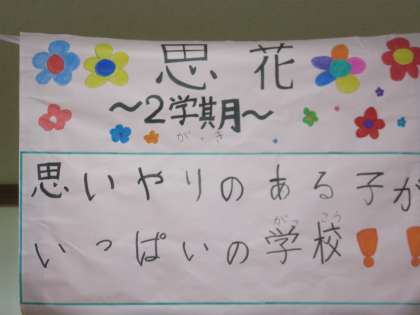 思花
～2学期月～
がっき
思いやりのある子が
がっこう
いっぱいの学校!!